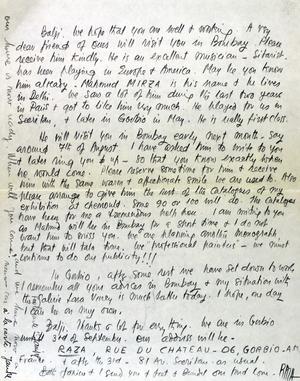 Balji. We hope that you are well & working. A very
dear friend of ours will visit you in Bombay. Please
receive him kindly. He is an excellent musician - Sitarist.
has been playing in Europe & America. May be you know
him already. Mahmud MIRZA is his name & he lives
in Delhi. We saw a lot of him during his last two years
in Paris & got to like him very much. He played for us in
& later in Gorbio in May. He is really first class.
He will visit you in Bombay early next month - say
around 4th of August. I have asked him to write to you
& later ring you up - so that you know exactly when
he would come. Please reserve some time for him & receive
him with the same warm & affectionate smile we are used to. Also
please arrange to give him the rest of the Catalogues of my
exhibition at Chemould. Some 90 or 100 will do. The Catalogue
have been for me a tremendous help here. I am writing to you
as Mahmud will be in Bombay for a short time & I do not
want him to miss you. We are planning another monograph
but that will take time. We "professional painters" - we must
continue to do our publicity!!!
In Gorbio, after some rest we have set down to work.
I remember all you advices in Bombay & my situation with
the Galerie Lara Vincy is much better today. I hope, one day,
I can be on my own.
Balji, Thanks a lot for everything. We are in Gorbio
until 3rd of September. Our address will be -
RAZA, RUE DU CHATEAU - 06, GORBIO - AM.
France. & after the 3rd - 81 Av. as usual.
Both Janine & I send you & and our fond love.
RAZA
our house is now ready. When will you come?